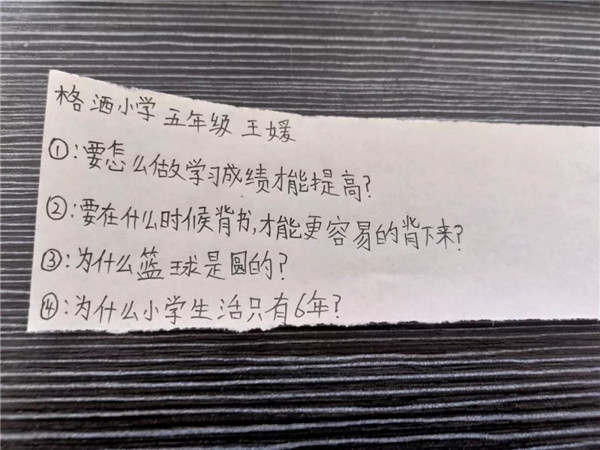 格洒小学 五年级 王媛
①:要怎么做学习成绩才能提高?
②:要在什么时候背书,才能更容易的背下来?
③:为什么篮球是圆的?
④:为什么小学生活只有6年?